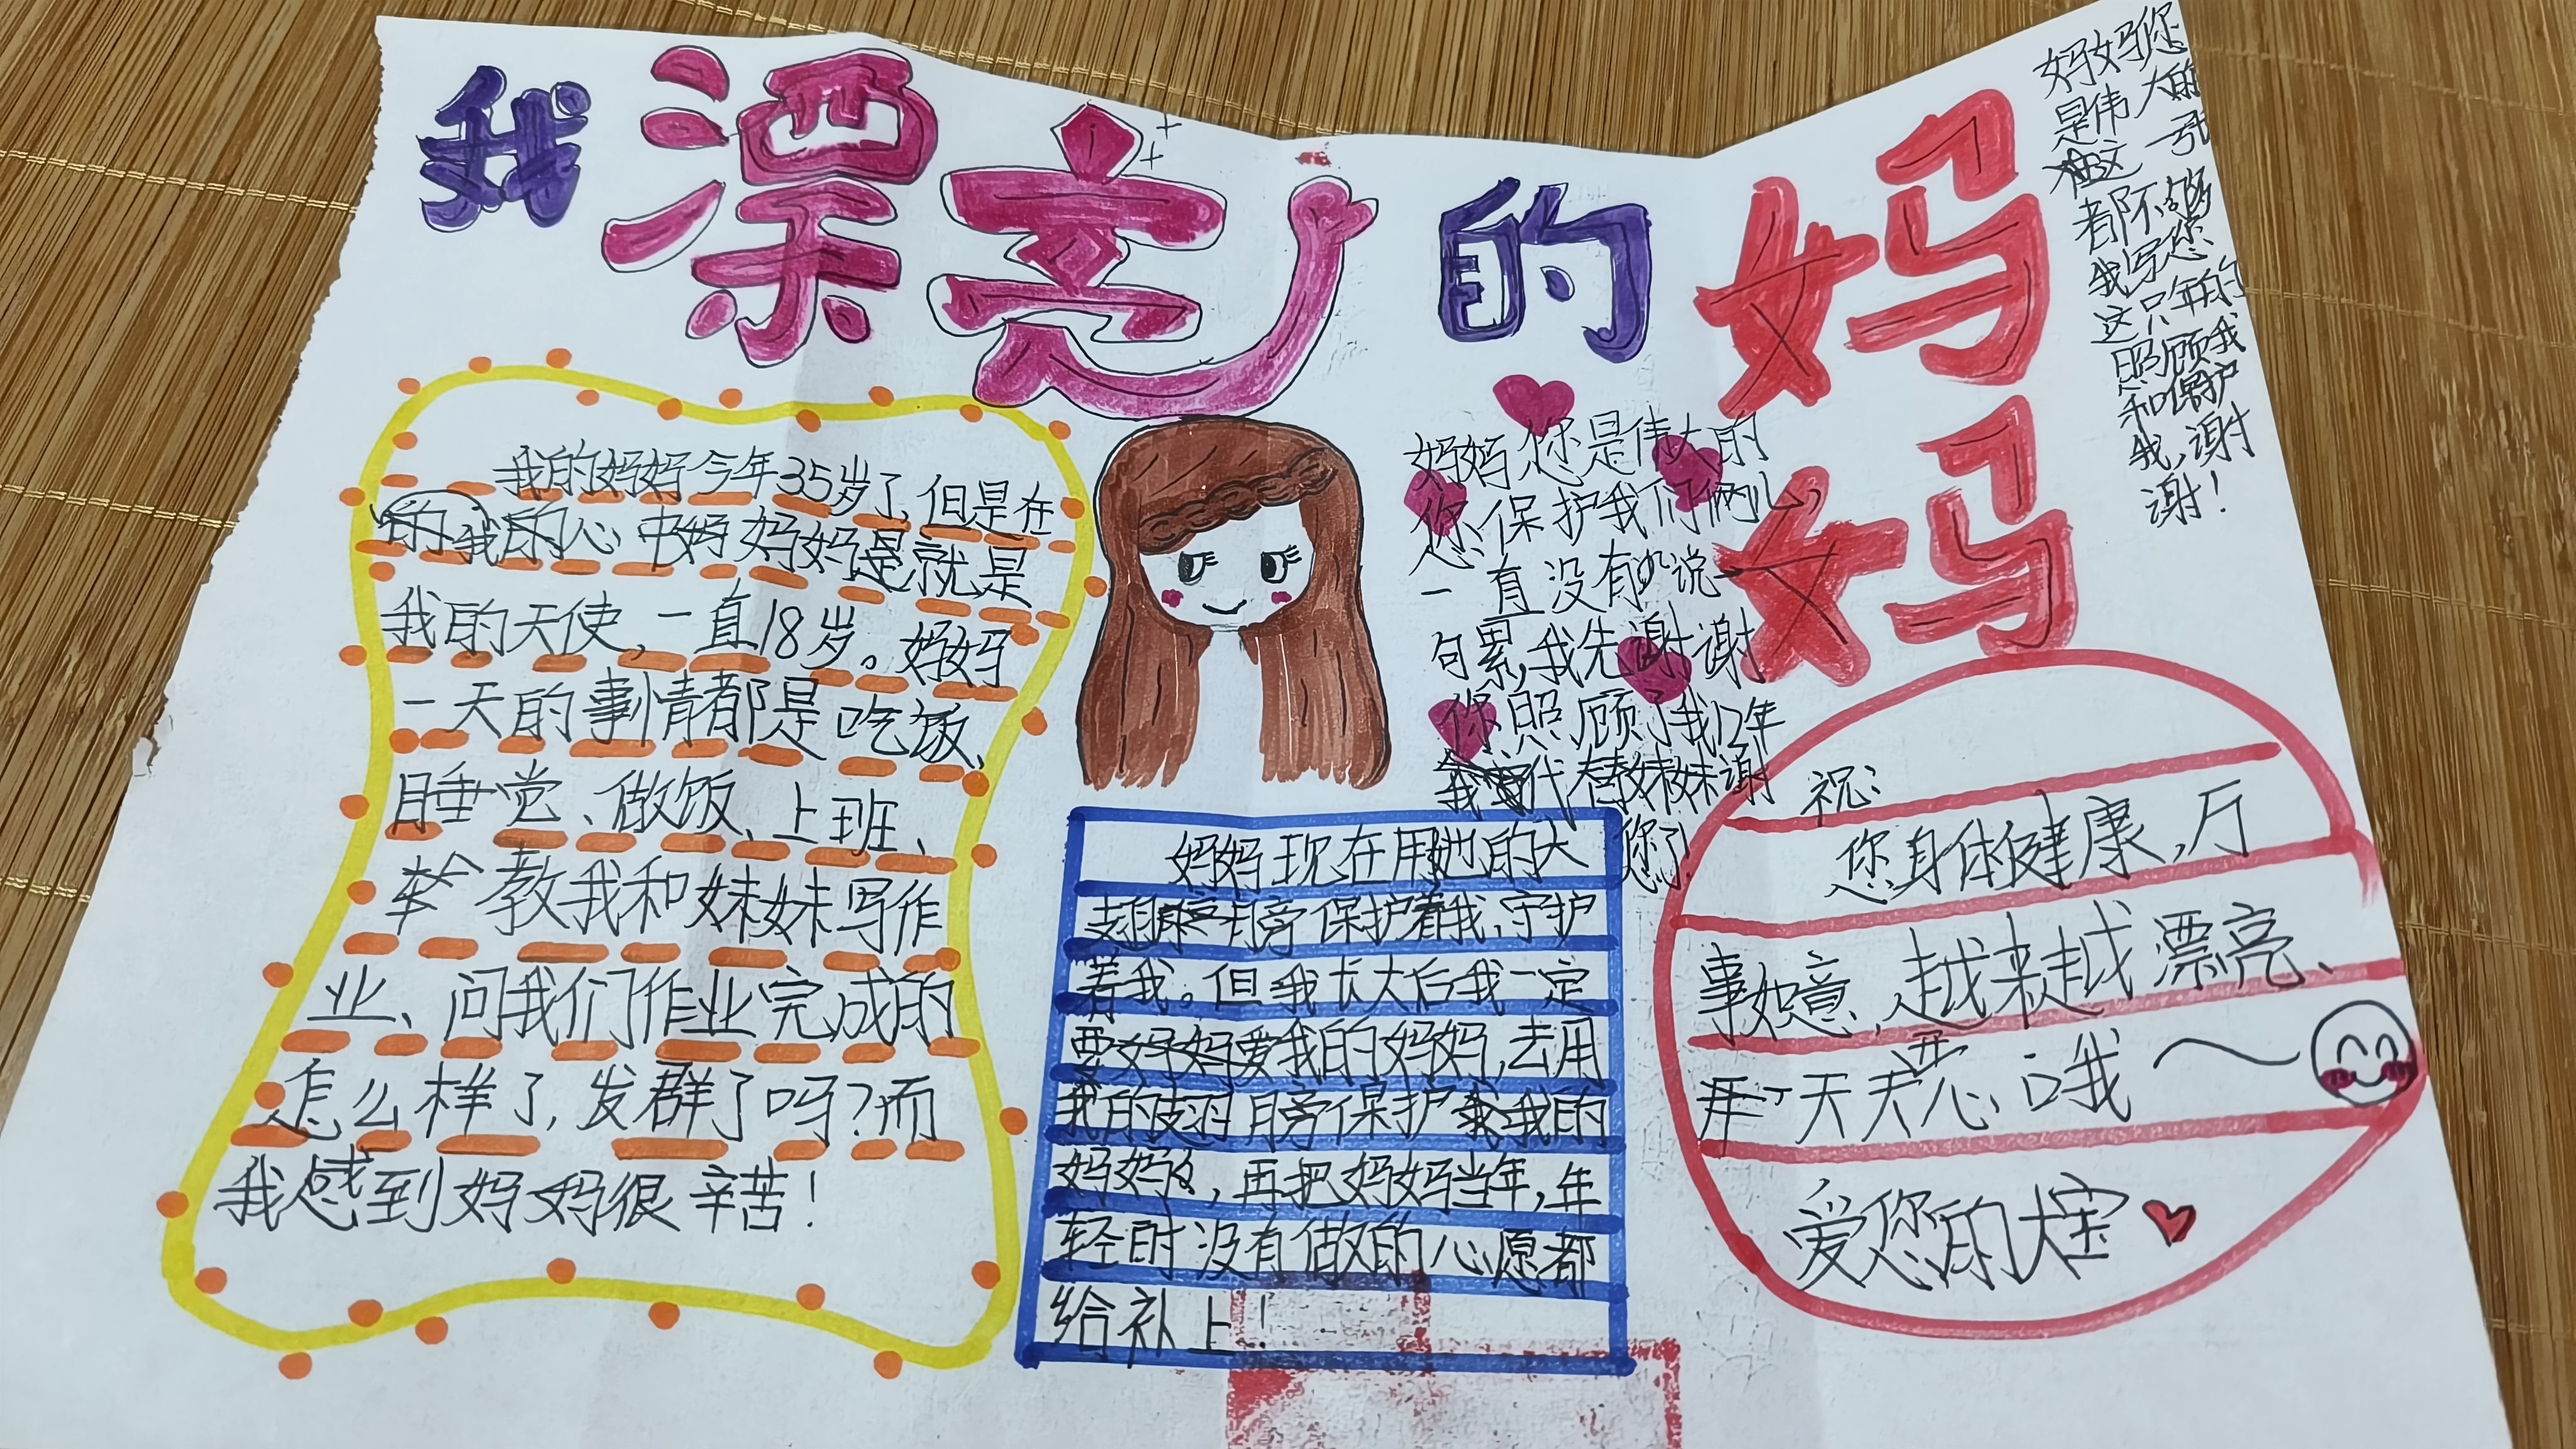 我漂亮的妈妈
我的妈妈今年35岁了,但是在
我的心中妈妈就是
我的天使,一直18岁。妈妈
一天的事情都是吃饭、
睡觉、做饭、上班、
教我和妹妹写作
业、问我们作业完成的
怎么样了,发群了吗?而
我感到妈妈很辛苦!
妈妈您是伟大的
您保护我们俩儿
一直没有说一
句累,我先谢谢
你照顾了我12年
我代替妹妹谢
您了!
妈妈现在用她的大
翅膀保护着我、守护
着我。但我长大后我一定
要好好爱我的妈妈,去用
我的翅膀保护我的
妈妈,再把妈妈当年,年
轻时没有做的心愿都
给补上!
妈妈您
是伟大的
这一张
都不够
我写您
这年的
照顾我
和保护
我,谢
谢!
祝:
您身体健康,万
事如意,越来越漂亮、
天天开心哦~
爱您的大宝